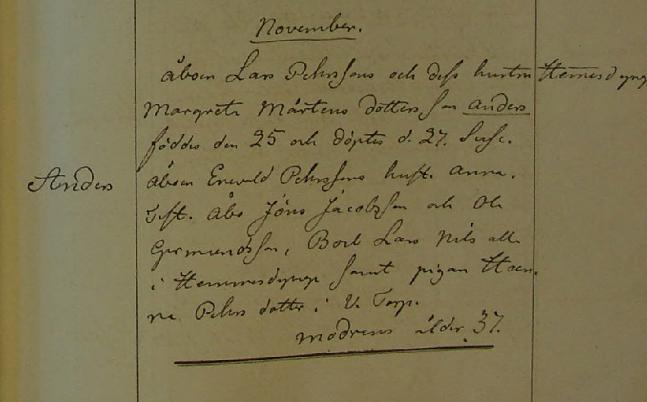 November.
åboen Lars Pehrssons och dess hustru Hemmesdynge
Margreta Mårtens dotters son Anders
föddes den 25 och döptes d. 27. Susc.
Anders
åboen Erwald Pehrssons hust. Anna.
Test. åbo Jöns Jacobsson och Ola
Germundsson, Bock Lars Nils alla
i Hemmesdynge samt pigan Han-
na Pehrs dotter i V. Torp.
modrens ålder 37.